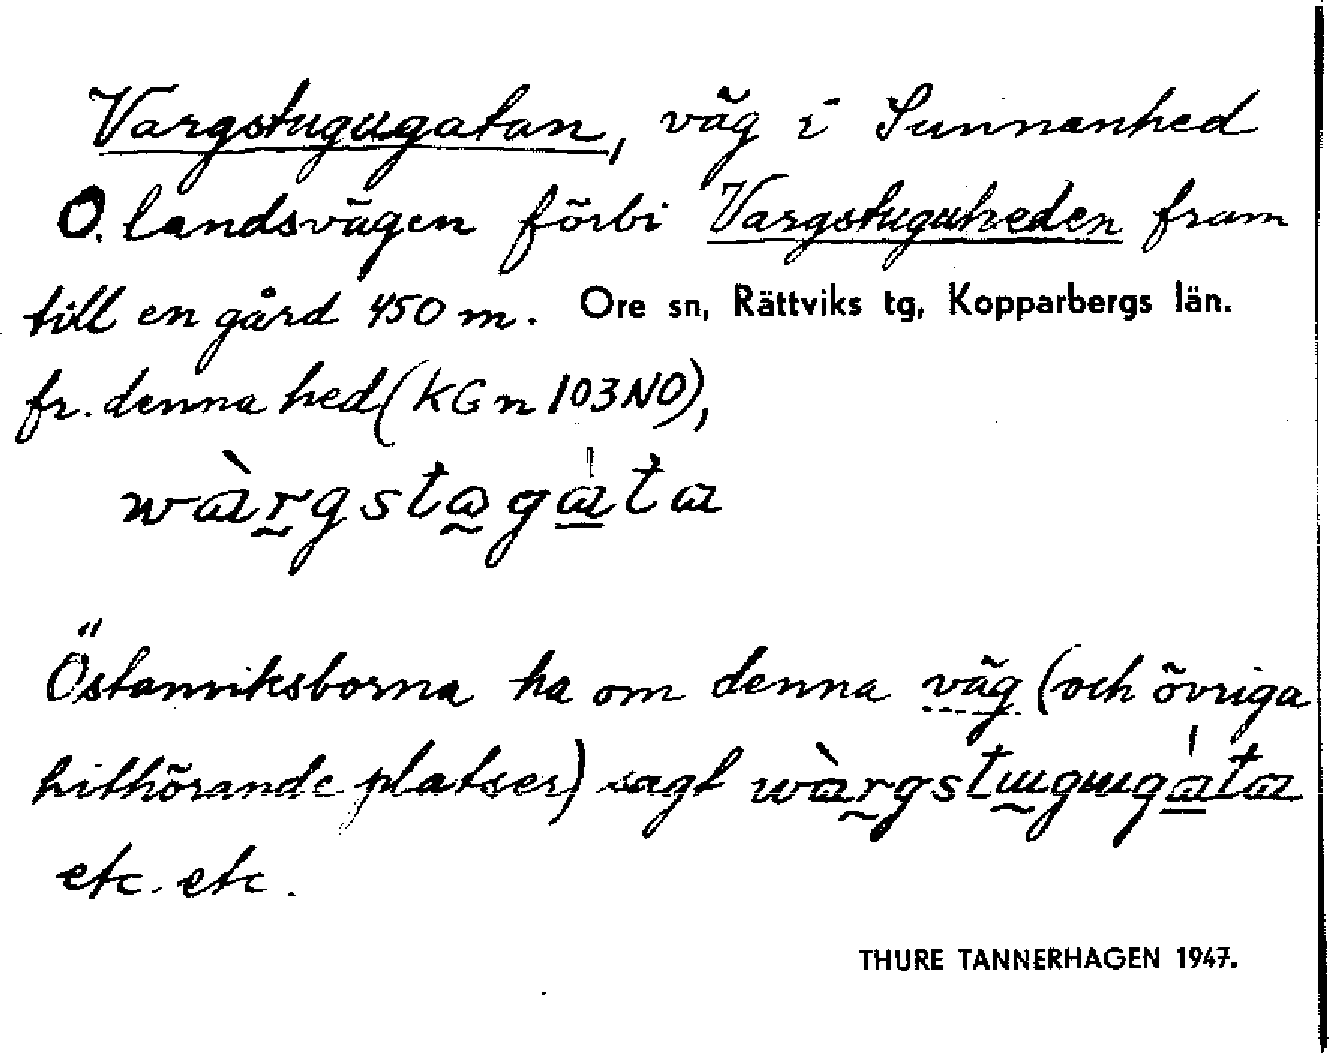 Vargstugugatan, väg i Sunnanhed
O. landsvägen förbi Vargstuguheden fram
till en gård 450 m. Ore sn, Rättviks tg, Kopparbergs län.
fr. denna hed (KG n 103 NO),
wàrgstagáta
Östanviksborna ha om denna väg (och övriga
hithörande platser) sagt wàrgstugugáta
etc. etc.
THURE TANNERHAGEN 1947.